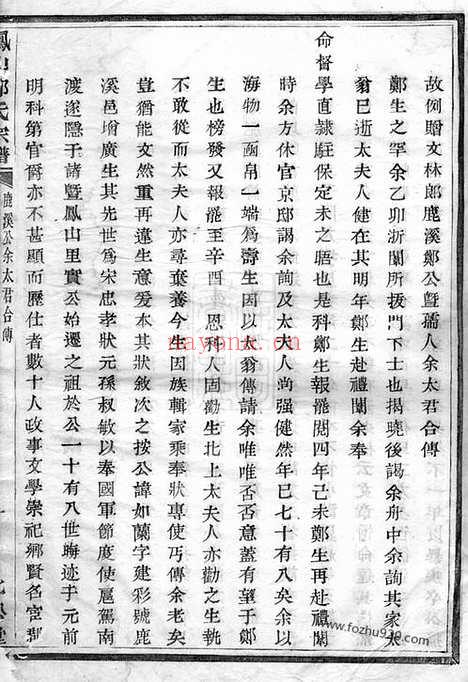 故例贈文林郎鹿溪鄭公曁孺人余太君合傳
鄭生之罕余乙卯浙闈所拔門下士也揭曉後謁余舟中余詢其家太
翁已逝太夫人健在其明年鄭生赴禮闈余奉
命督學直隸駐保定未之晤也是科鄭生報罷閱四年己未鄭生再赴禮闈
時余方休官京邸謁余詢及太夫人尚强健然年已七十有八矣余以
海物一函帛一端為壽生因以太翁傳請余唯唯否否意蓋有望于鄭
生也榜發又報罷至辛酉 恩科人固勸生北上太夫人亦勸之生執
不敢從而太夫人亦尋棄養今生因族輯家乘奉狀專使丐傳余老矣
豈猶能文然重再違生意爰本其狀敘次之按公諱如蘭字建彩號鹿
溪邑增廣生其先世爲宋忠孝狀元孫叔敏以奉國軍節度使扈駕南
渡遂隱于諸暨鳳山里實公始遷之祖於公一十有八世晦迹于元前
明科第官爵亦不甚顯而歷仕者數十人政事文學崇祀鄉賢名宦郡
鳳山鄭氏宗譜
鹿溪公余太君合傳
nayona.cn
www.fozhu920.com